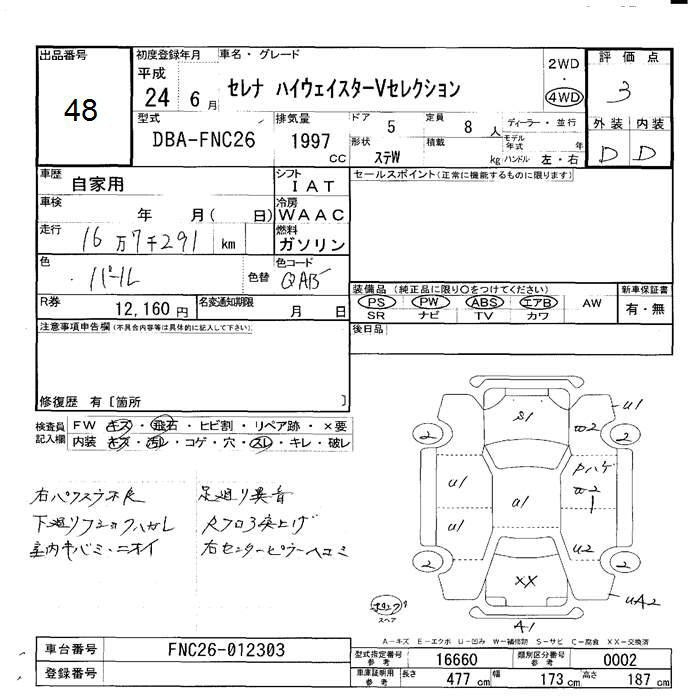 出品番号
48
初度登録年月
平成
24 6月
車名・グレード
セレナ ハイウェイスターVセレクション
2WD
・
4WD
評価点
3
外装 内装
D D
型式
DBA-FNC26
排気量
1997 cc
ドア 5
定員 8 人
形状 ステW
積載 kg
ディーラー・並行
モデル年式 年
ハンドル 左・右
車歴 自家用
シフト IAT
車検 年 月( 日)
冷房 WAAC
走行 16万7千291 km
燃料 ガソリン
色 パール 色替
色コード QAB
R券 12,160円
名変通知期限 月 日
セールスポイント(正常に機能するものに限ります)
装備品 (純正品に限り○をつけてください)
PS PW ABS エアB AW
SR ナビ TV カワ
新車保証書
有・無
後日品
注意事項申告欄(不具合内容等は具体的に記入して下さい)
修復歴 有 [箇所 ]
検査員記入欄
FW キズ・飛石・ヒビ割・リペア跡・×要
内装 キズ・汚レ・コゲ・穴・スレ・キレ・破レ
右パワスラ不良 足廻り異音
下廻り ハガレ 突上げ
室内 ニオイ 右センターピラーヘコミ
S1
U1
W2
2
2
Pハゲ
W2
1
U1
A1
U1
U2
2
2
XX
UA2
A1
スペア
A-キズ E-エクボ U-凹み W-補修跡 S-サビ C-腐食 XX-交換済
車台番号 FNC26-012303
登録番号
型式指定番号 参考 16660
類別区分番号 参考 0002
車庫証明用 参考 長さ 477 cm 幅 173 cm 高さ 187 cm